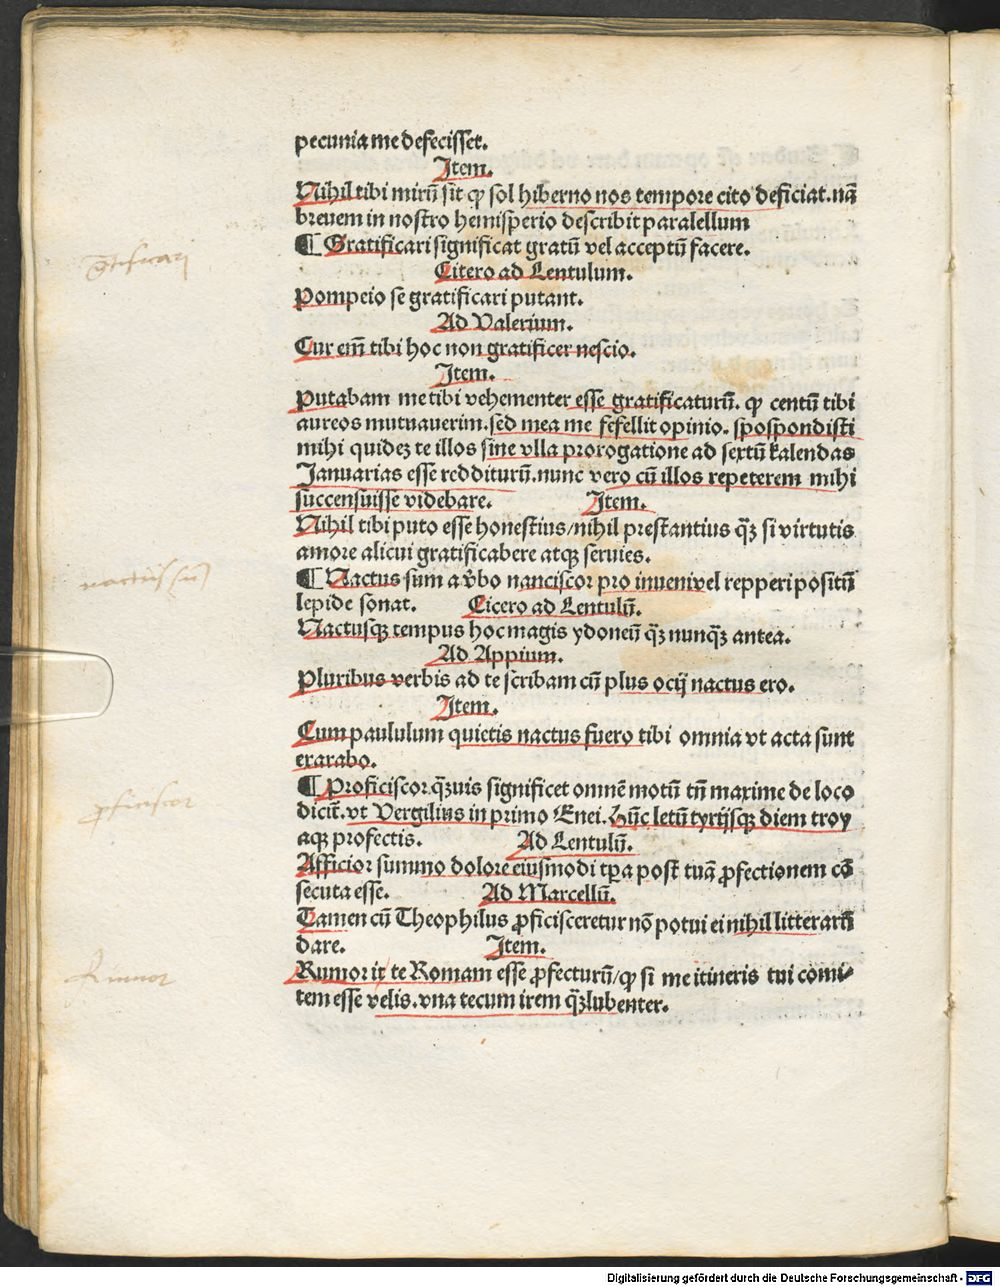 pecunia me defecisset.
Item.
Nihil tibi mirū sit qꝫ sol hiberno nos tempore cito deficiat. nā
breuem in nostro hemisperio describit paralellum
¶ Gratificari significat gratū vel acceptū facere.
Citero ad Lentulum.
Pompeio se gratificari putant.
Ad Valerium.
Cur em̄ tibi hoc non gratificer nescio.
Item.
Putabam me tibi vehementer esse gratificaturū. ꝙ centū tibi
aureos mutuauerim. sed mea me fefellit opinio. spospondisti
mihi quideꝫ te illos sine vlla prorogatione ad sextū kalendas
Januarias esse redditurū. nunc vero cū illos repeterem mihi
succensuisse videbare. Item.
Nihil tibi puto esse honestius/nihil prestantius qꝫ̄ si virtutis
amore alicui gratificabere atqꝫ seruies.
¶ Nactus sum a v̓bo nanciscor pro inueni vel repperi positū
lepide sonat. Cicero ad Lentulū.
Nactusqꝫ tempus hoc magis ydoneū qꝫ̄ nunqꝫ̄ antea.
Ad Appium.
Pluribus verbis ad te scribam cū plus ocij nactus ero.
Item.
Cum paululum quietis nactus fuero tibi omnia vt acta sunt
exarabo.
¶ Proficiscor qꝫ̄uis significet omnē motū tn̄ maxime de loco
dicit̄. vt Vergilius in primo Enei. Hūc letū tyrijsqꝫ diem troy
aqꝫ profectis. Ad Lentulū.
Afficior summo dolore eiusmodi tꝑa post tuā ꝓfectionem cō
secuta esse. Ad Marcellū.
Tamen cū Theophilus ꝓficisceretur nō potui ei nihil litterarū
dare. Item.
Rumor it te Romam esse ꝓfecturū/ꝙ si me itineris tui comi-
tem esse velis. vna tecum irem qꝫ̄lubenter.
nactus sū
ꝓficiscor
Rumor
Digitalisierung gefördert durch die Deutsche Forschungsgemeinschaft - DFG